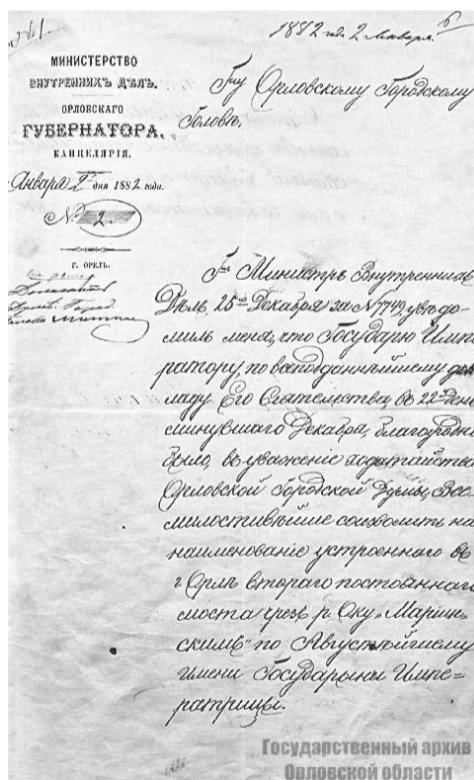 №1.
1882 года 2 Января.
6
МИНИСТЕРСТВО
ВНУТРЕННИХЪ ДѢЛЪ.
ОРЛОВСКАГО
ГУБЕРНАТОРА.
КАНЦЕЛЯРІЯ.
Января 2 дня 1882 года.
№ 2.
Г. ОРЕЛЪ.
Гну Орловскому Городскому
Головѣ.
Гнъ Министръ Внутреннихъ
Дѣлъ, 25го Декабря за №7749, увѣдо-
милъ меня, что Государю Импе
ратору, по всеподданнѣйшему док
ладу Его Сіятельства, въ 22й день
минувшаго Декабря, благоугодно
было, въ уваженіе ходатайства
Орловской Городской Думы, Все
милостивѣйше соизволить на
наименованіе устроеннаго въ
г Орлѣ втораго постояннаго
моста чрезъ р. Оку „Маріин-
скимъ“ по Августѣйшему
имени Государыни Импе=
ратрицы.
Государственный архив
Орловской области